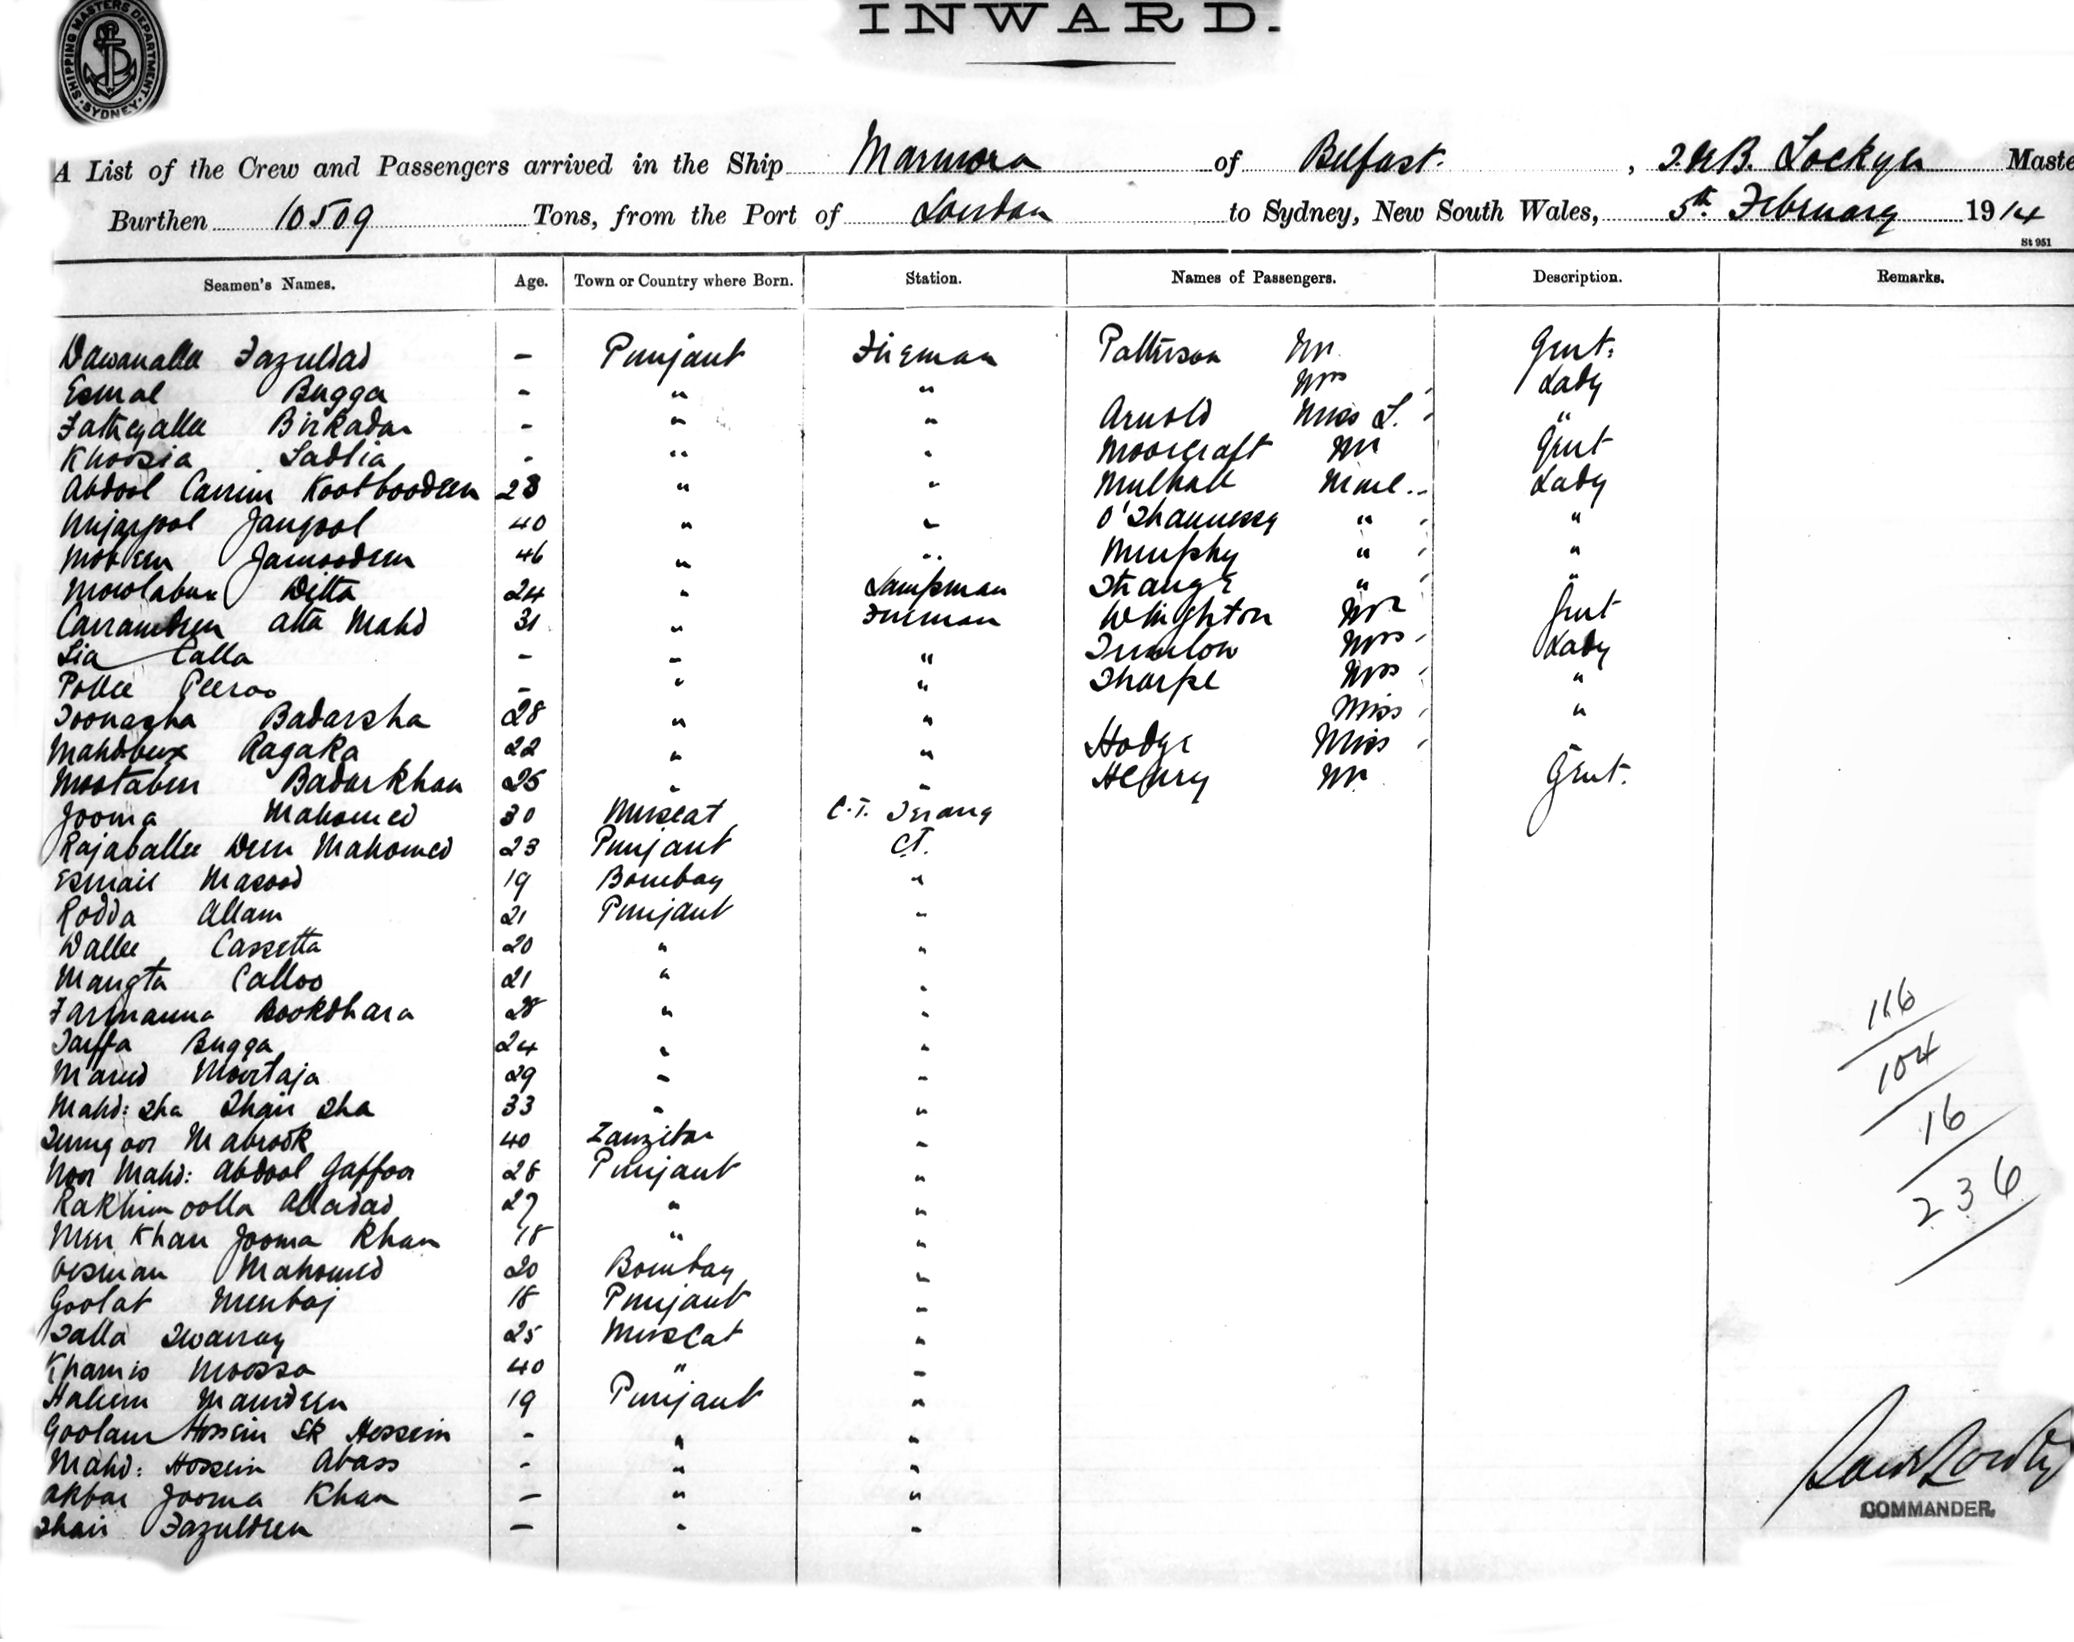 SHIPPING MASTERS DEPARTMENT. SYDNEY.
INWARD.
A List of the Crew and Passengers arrived in the Ship Marmora of Belfast. , Lockyer Maste
Burthen 10509 Tons, from the Port of London to Sydney, New South Wales, 5th February 1914
St 951
Seamen's Names. Age. Town or Country where Born. Station. Names of Passengers. Description. Remarks.
Dawanallee Fazuldad - Punjaub Fireman Patterson Mr Gent.
Esmal Bugga - " " Mrs Lady
Fatheyallee Birkadar - " " Arnold Miss L. "
Khoosia Sadlia - " " Moorcraft Mr Gent
Abdool Carrim Kootboodeen 23 " " Mulhall Lady
Jangool 40 " " O'Shannessy " "
Mobeen Jamoodeen 46 " " Murphy " "
Mowlabux Ditta 24 " Lampman Strange " "
Carramdeen Atta Mahd 31 " Fireman Whighton Mr Gent
Sia Calla - " " Mrs Lady
Pollee Peeroo - " " Sharpe Mrs "
Joonagha Badarsha 28 " " Miss "
Mahdbux Ragaka 22 " " Hodge Miss
Mostaben Badarkhan 25 " " Henry Mr Gent.
Jooma Mahomed 30 Muscat C.T. Serang
Rajaballee Deen Mahomed 23 Punjaub C.T.
Esmail Masood 19 Bombay "
Rodda Allam 21 Punjaub "
Wallee Cassetta 20 " "
Mangta Calloo 21 " "
Farmanna Bookdhara 28 " "
Bugga 24 " "
Moortaja 29 " "
Mahd: Sha Shair Sha 33 " "
Mabrook 40 Zanzibar "
Noor Mahd: Abdool Gaffoor 28 Punjaub "
Rakhimoolla Alladad 27 " "
Meer Khan Jooma Khan 18 " "
Oesman Mahomed 20 Bombay "
Goolab 18 Punjaub "
Salla 25 Muscat "
Khamis Moossa 40 " "
Hakim Mamdeen 19 Punjaub "
Goolam Hossein Sk Hossein - " "
Mahd: Hossein Abass - " "
Akbar Jooma Khan - " "
Shair Fazuldeen - " "
116
104
16
236
COMMANDER.